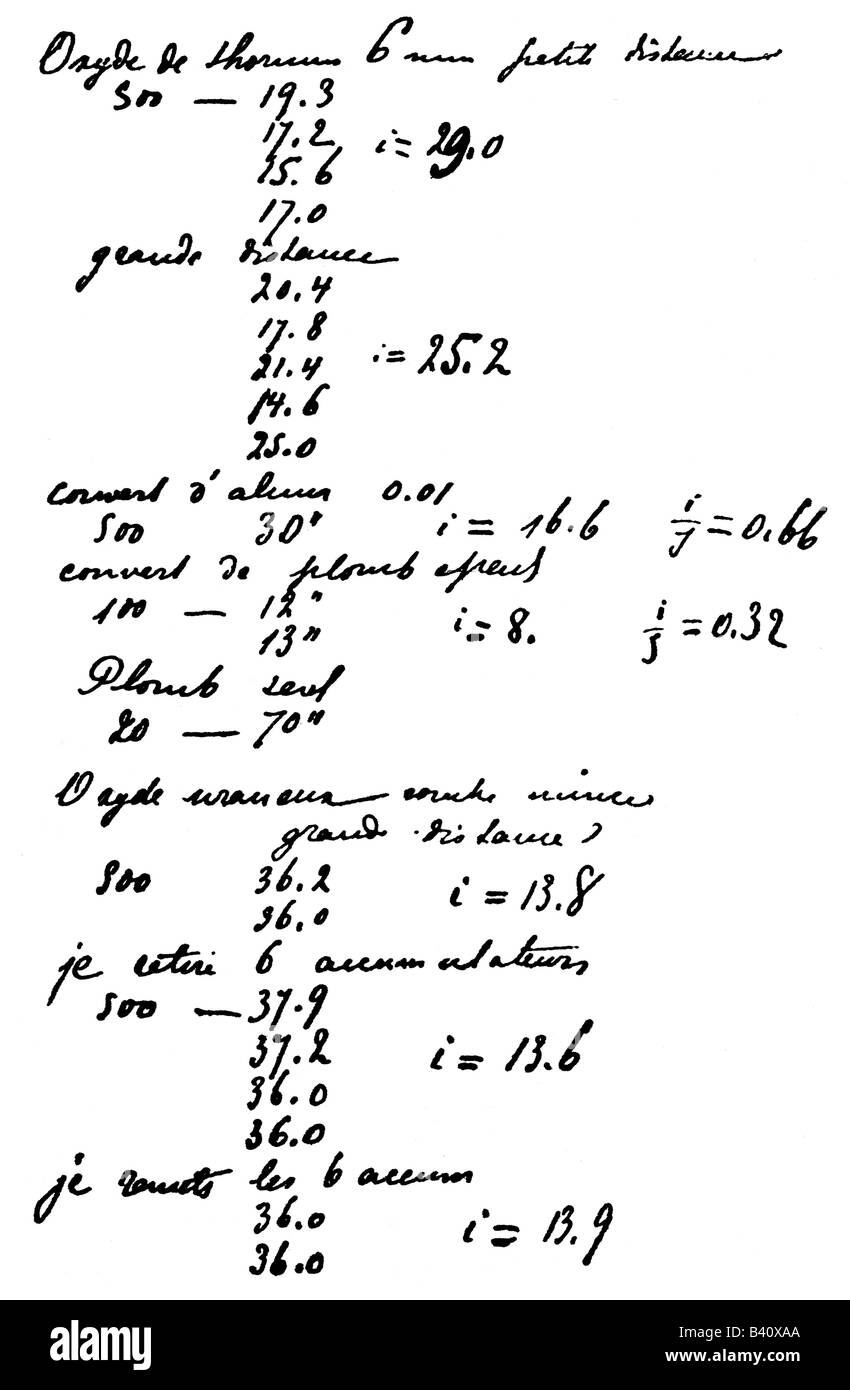 Oxyde de thorium 6 mm petite distance
500 — 19.3
17.2 i = 29.0
15.6
17.0
grande distance
20.4
17.8
21.4 i = 25.2
14.6
25.0
couvert d'alum 0.01
500 30" i = 16.6 i/J = 0.66
couvert de plomb épais
100 — 12"
13" i = 8. i/J = 0.32
Plomb seul
20 — 70"
Oxyde uraneux couche mince
grande distance
500 36.2 i = 13.8
36.0
je retire 6 accumulateurs
500 — 37.9
37.2 i = 13.6
36.0
36.0
je remets les 6 accum
36.0 i = 13.9
36.0
alamy
Image ID: B40XAA
www.alamy.com